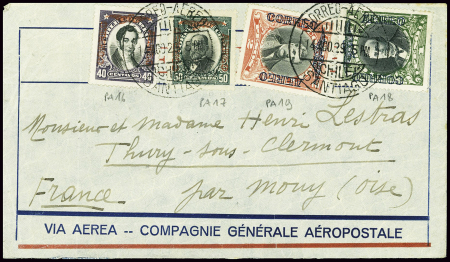 CORREO-AEREO
CHILE
SANTIAGO
40 CENTAVOS 40
50 50
CORREO
AEREO
PA16
PA17
PA19
PA18
Monsieur et Madame Henri Lestras
Thury-sous-Clermont
France par Mouy (Oise)
VIA AEREA -- COMPAGNIE GÉNÉRALE AÉROPOSTALE